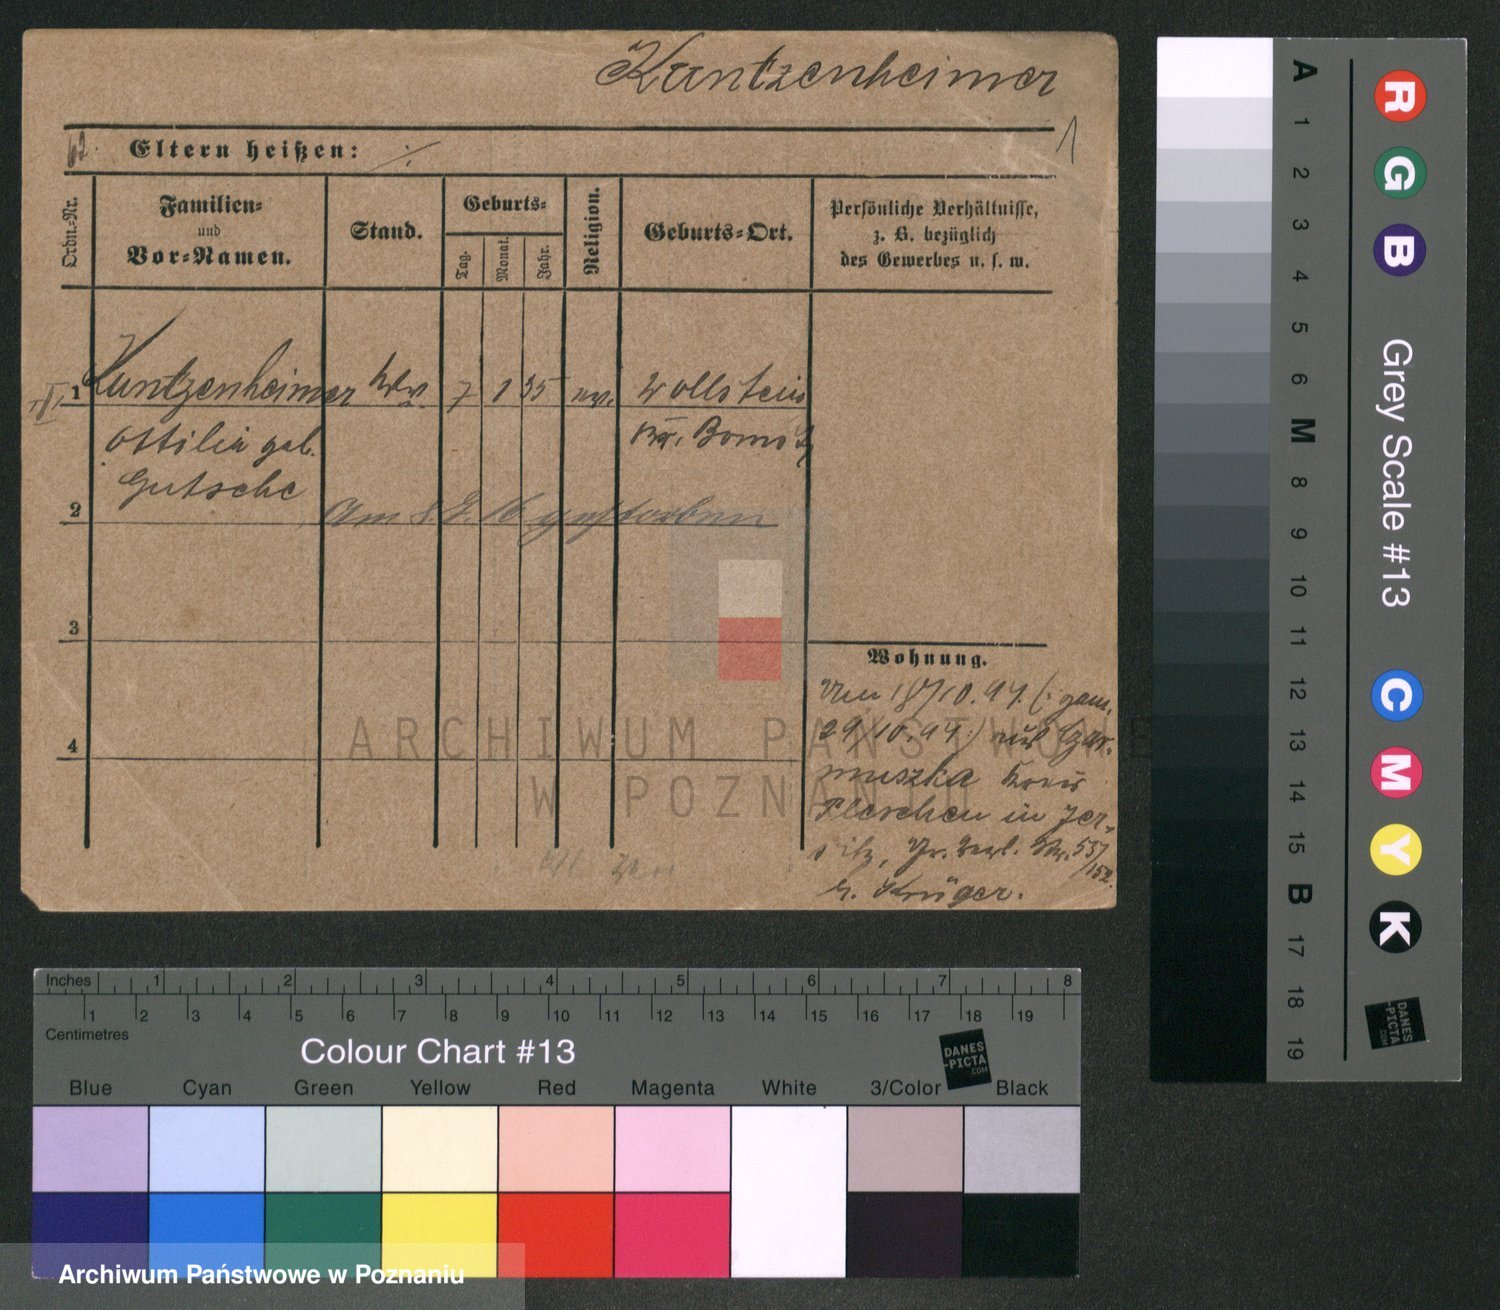 Kuntzenheimer
1
62.
Eltern heißen: ./.
Ordn.-Nr.
Familien-
und
Vor-Namen.
Stand.
Geburts-
Tag.
Monat.
Jahr.
Religion.
Geburts-Ort.
Persönliche Verhältnisse,
z. B. bezüglich
des Gewerbes u. s. w.
1 Kuntzenheimer Wwe. 7 1 35 ev. Wollstein
Ottilie geb. Kr. Bomst
Gutsche
2 Am 8.8.16 gestorben
3
4
Wohnung.
Den 18/10.94. (: gem.
29/10.94:) aus
Kreis
Pleschen in Jer-
sitz, 537/152.
b. Krüger.
ARCHIWUM PAŃSTWOWE
W POZNANIU
A 1 2 3 4 5 6 M 8 9 10 11 12 13 14 15 B 17 18 19
R G B
Grey Scale #13
C M Y K
DANES
-PICTA
.COM
Inches 1 2 3 4 5 6 7 8
1 2 3 4 5 6 7 8 9 10 11 12 13 14 15 16 17 18 19
Centimetres
Colour Chart #13
DANES
-PICTA
.COM
Blue Cyan Green Yellow Red Magenta White 3/Color Black
Archiwum Państwowe w Poznaniu